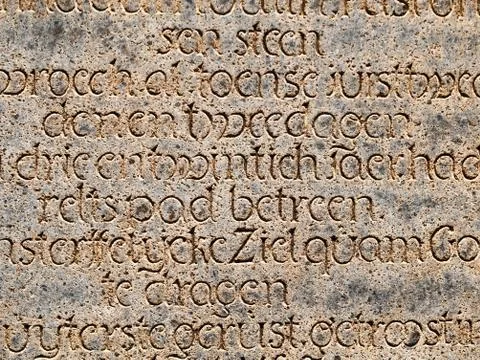 sen steen
al toense
den en
drie en twintich. Jaer hae
relts pad betreen
nsterffelycke Ziel quam Go
te dragen
uyterste gerust. getroost